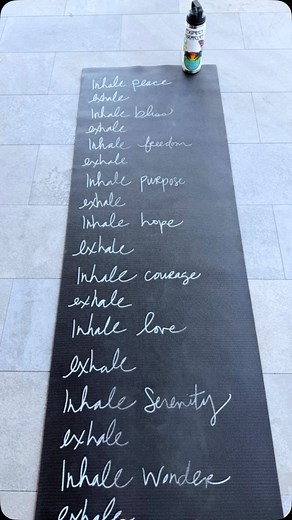 EXPECT
MIRACLES
Inhale peace
exhale
Inhale bliss
exhale
Inhale freedom
exhale
Inhale purpose
exhale
Inhale hope
exhale
Inhale courage
exhale
Inhale love
exhale
Inhale Serenity
exhale
Inhale Wonder
exhale